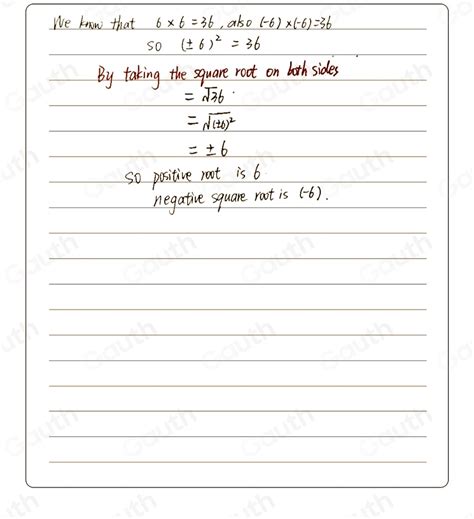 We know that 6 × 6 = 36, also (-6) × (-6) = 36
so (± 6)² = 36
By taking the square root on both sides
= √36
= √(±6)²
= ± 6
so positive root is 6
negative square root is (-6).